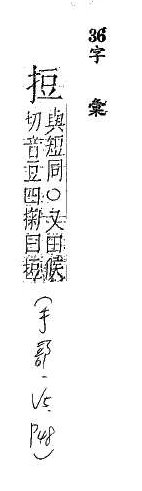 36字彙
𢭃
與短同○又田候
切音豆四捌曰𢭃
(手部-V5.P48)